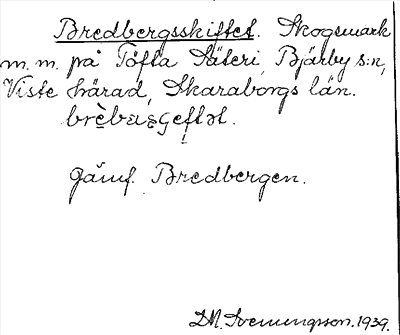 Bredbergsskiftet. Skogsmark
m. m. på Töfta Säteri, Bjärby s:n,
Viste härad, Skaraborgs län.
Jämf. Bredbergen.
D.A. Svenungsson. 1939.